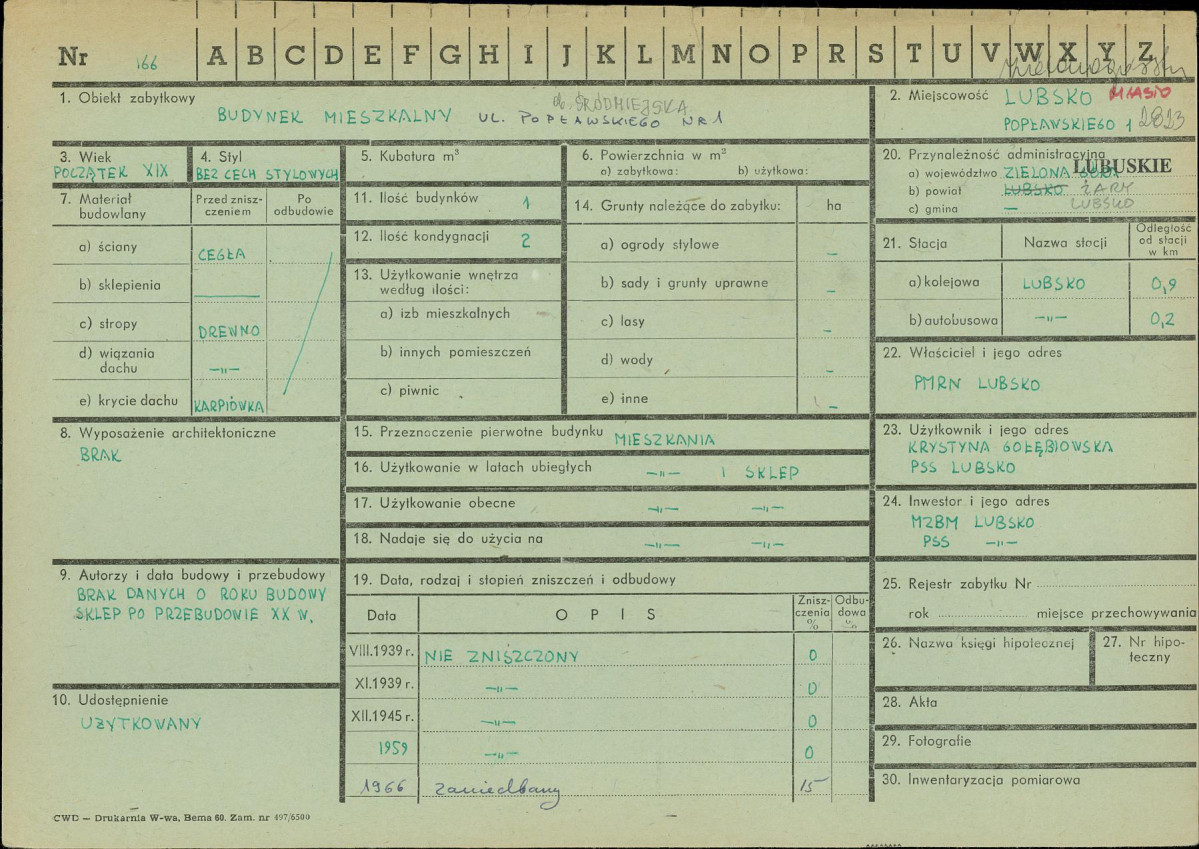 Nr 166 A B C D E F G H I J K L M N O P R S T U V W X Y Z
1. Obiekt zabytkowy
ob. ŚRÓDMIEJSKA
BUDYNEK MIESZKALNY UL. POPŁAWSKIEGO NR 1
2. Miejscowość LUBSKO MIASTO
POPŁAWSKIEGO 1 2823
3. Wiek
POCZĄTEK XIX
4. Styl
BEZ CECH STYLOWYCH
5. Kubatura m³
6. Powierzchnia w m²
a) zabytkowa: b) użytkowa:
20. Przynależność administracyjna
LUBUSKIE
a) województwo ZIELONA GÓRA
b) powiat LUBSKO ŻARY
c) gmina — LUBSKO
7. Materiał budowlany
Przed znisz-
czeniem
Po
odbudowie
a) ściany CEGŁA
b) sklepienia —
c) stropy DREWNO
d) wiązania
dachu —„—
e) krycie dachu KARPIÓWKA
11. Ilość budynków 1
12. Ilość kondygnacji 2
13. Użytkowanie wnętrza
według ilości:
a) izb mieszkalnych
b) innych pomieszczeń
c) piwnic
14. Grunty należące do zabytku: ha
a) ogrody stylowe –
b) sady i grunty uprawne –
c) lasy –
d) wody –
e) inne –
21. Stacja Nazwa stacji
Odległość
od stacji
w km
a) kolejowa LUBSKO 0,9
b) autobusowa —„— 0,2
22. Właściciel i jego adres
PMRN LUBSKO
8. Wyposażenie architektoniczne
BRAK
15. Przeznaczenie pierwotne budynku MIESZKANIA
16. Użytkowanie w latach ubiegłych —„— I SKLEP
17. Użytkowanie obecne —„— —„—
18. Nadaje się do użycia na —„— —„—
23. Użytkownik i jego adres
KRYSTYNA GOŁĘBIOWSKA
PSS LUBSKO
24. Inwestor i jego adres
MZBM LUBSKO
PSS —„—
9. Autorzy i data budowy i przebudowy
BRAK DANYCH O ROKU BUDOWY
SKLEP PO PRZEBUDOWIE XX W.
10. Udostępnienie
UŻYTKOWANY
19. Data, rodzaj i stopień zniszczeń i odbudowy
Data OPIS
Znisz-
czenia
%
Odbu-
dowa
%
VIII.1939 r. NIE ZNISZCZONY 0
XI.1939 r. —„— 0
XII.1945 r. —„— 0
1959 —„— 0
1966 zaniedbany 15
25. Rejestr zabytku Nr
rok miejsce przechowywania
26. Nazwa księgi hipotecznej
27. Nr hipo-
teczny
28. Akta
29. Fotografie
30. Inwentaryzacja pomiarowa
CWD — Drukarnia W-wa, Bema 60. Zam. nr 497/6500